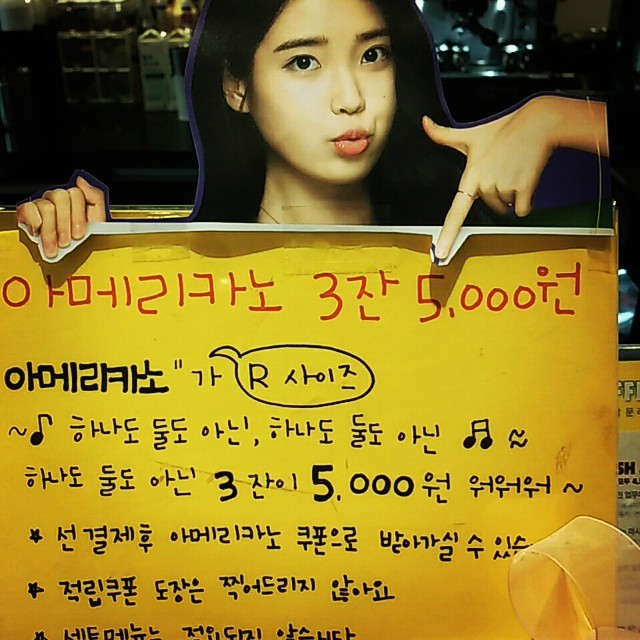 아메리카노 3잔 5,000원
아메리카노" 가 R 사이즈
~♪ 하나도 둘도 아닌, 하나도 둘도 아닌 ♬ ~
하나도 둘도 아닌 3잔이 5,000원 워워워 ~
* 선결제후 아메리카노 쿠폰으로 받아가실 수 있습
* 적립쿠폰 도장은 찍어드리지 않아요
* 세트메뉴는 적용되지 않습니다